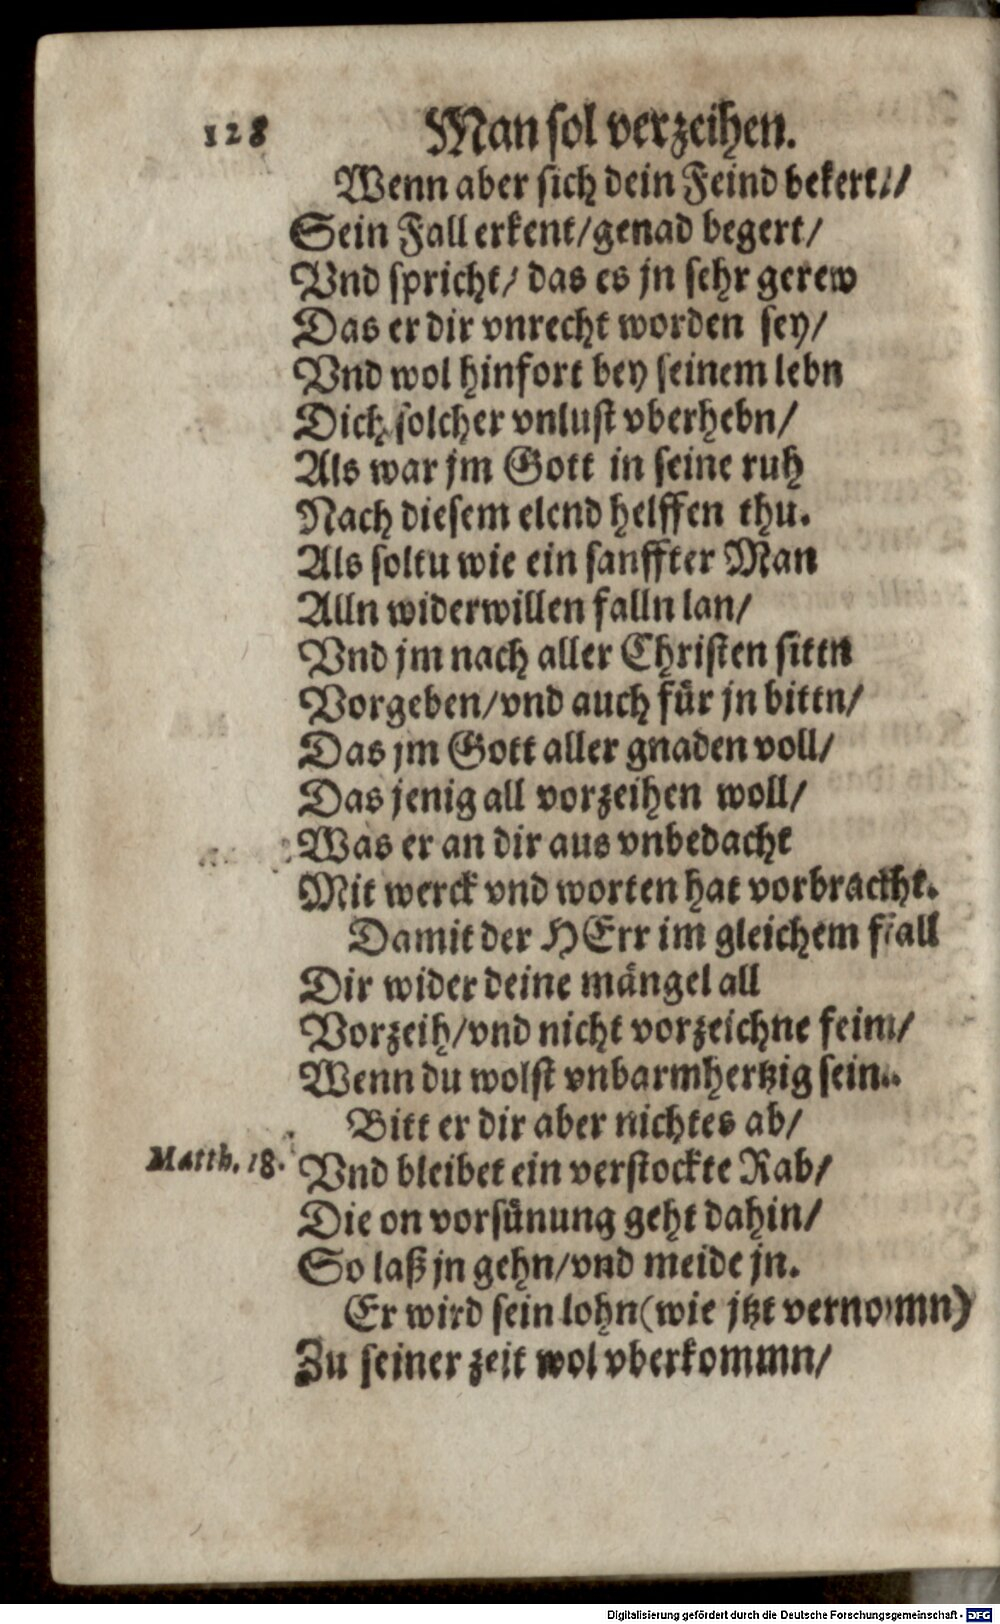 128 Man sol verzeihen.
Wenn aber sich dein Feind bekert//
Sein Fall erkent/genad begert/
Vnd spricht/ das es jn sehr gerew
Das er dir vnrecht worden sey/
Vnd wol hinfort bey seinem lebn
Dich solcher vnlust vberhebn/
Als war jm Gott in seine ruh
Nach diesem elend helffen thu.
Als soltu wie ein sanffter Man
Alln widerwillen falln lan/
Vnd jm nach aller Christen sittn
Vorgeben/vnd auch für jn bittn/
Das jm Gott aller gnaden voll/
Das jenig all vorzeihen woll/
Was er an dir aus vnbedacht
Mit werck vnd worten hat vorbractht.
Damit der HErr im gleichem fall
Dir wider deine mängel all
Vorzeih/vnd nicht vorzeichne feim/
Wenn du wolst vnbarmhertzig sein..
Bitt er dir aber nichtes ab/
Matth. 18. Vnd bleibet ein verstockte Rab/
Die on vorsünung geht dahin/
So laß jn gehn/vnd meide jn.
Er wird sein lohn(wie jtzt vernomn)
Zu seiner zeit wol vberkommn/
Digitalisierung gefördert durch die Deutsche Forschungsgemeinschaft - DFG